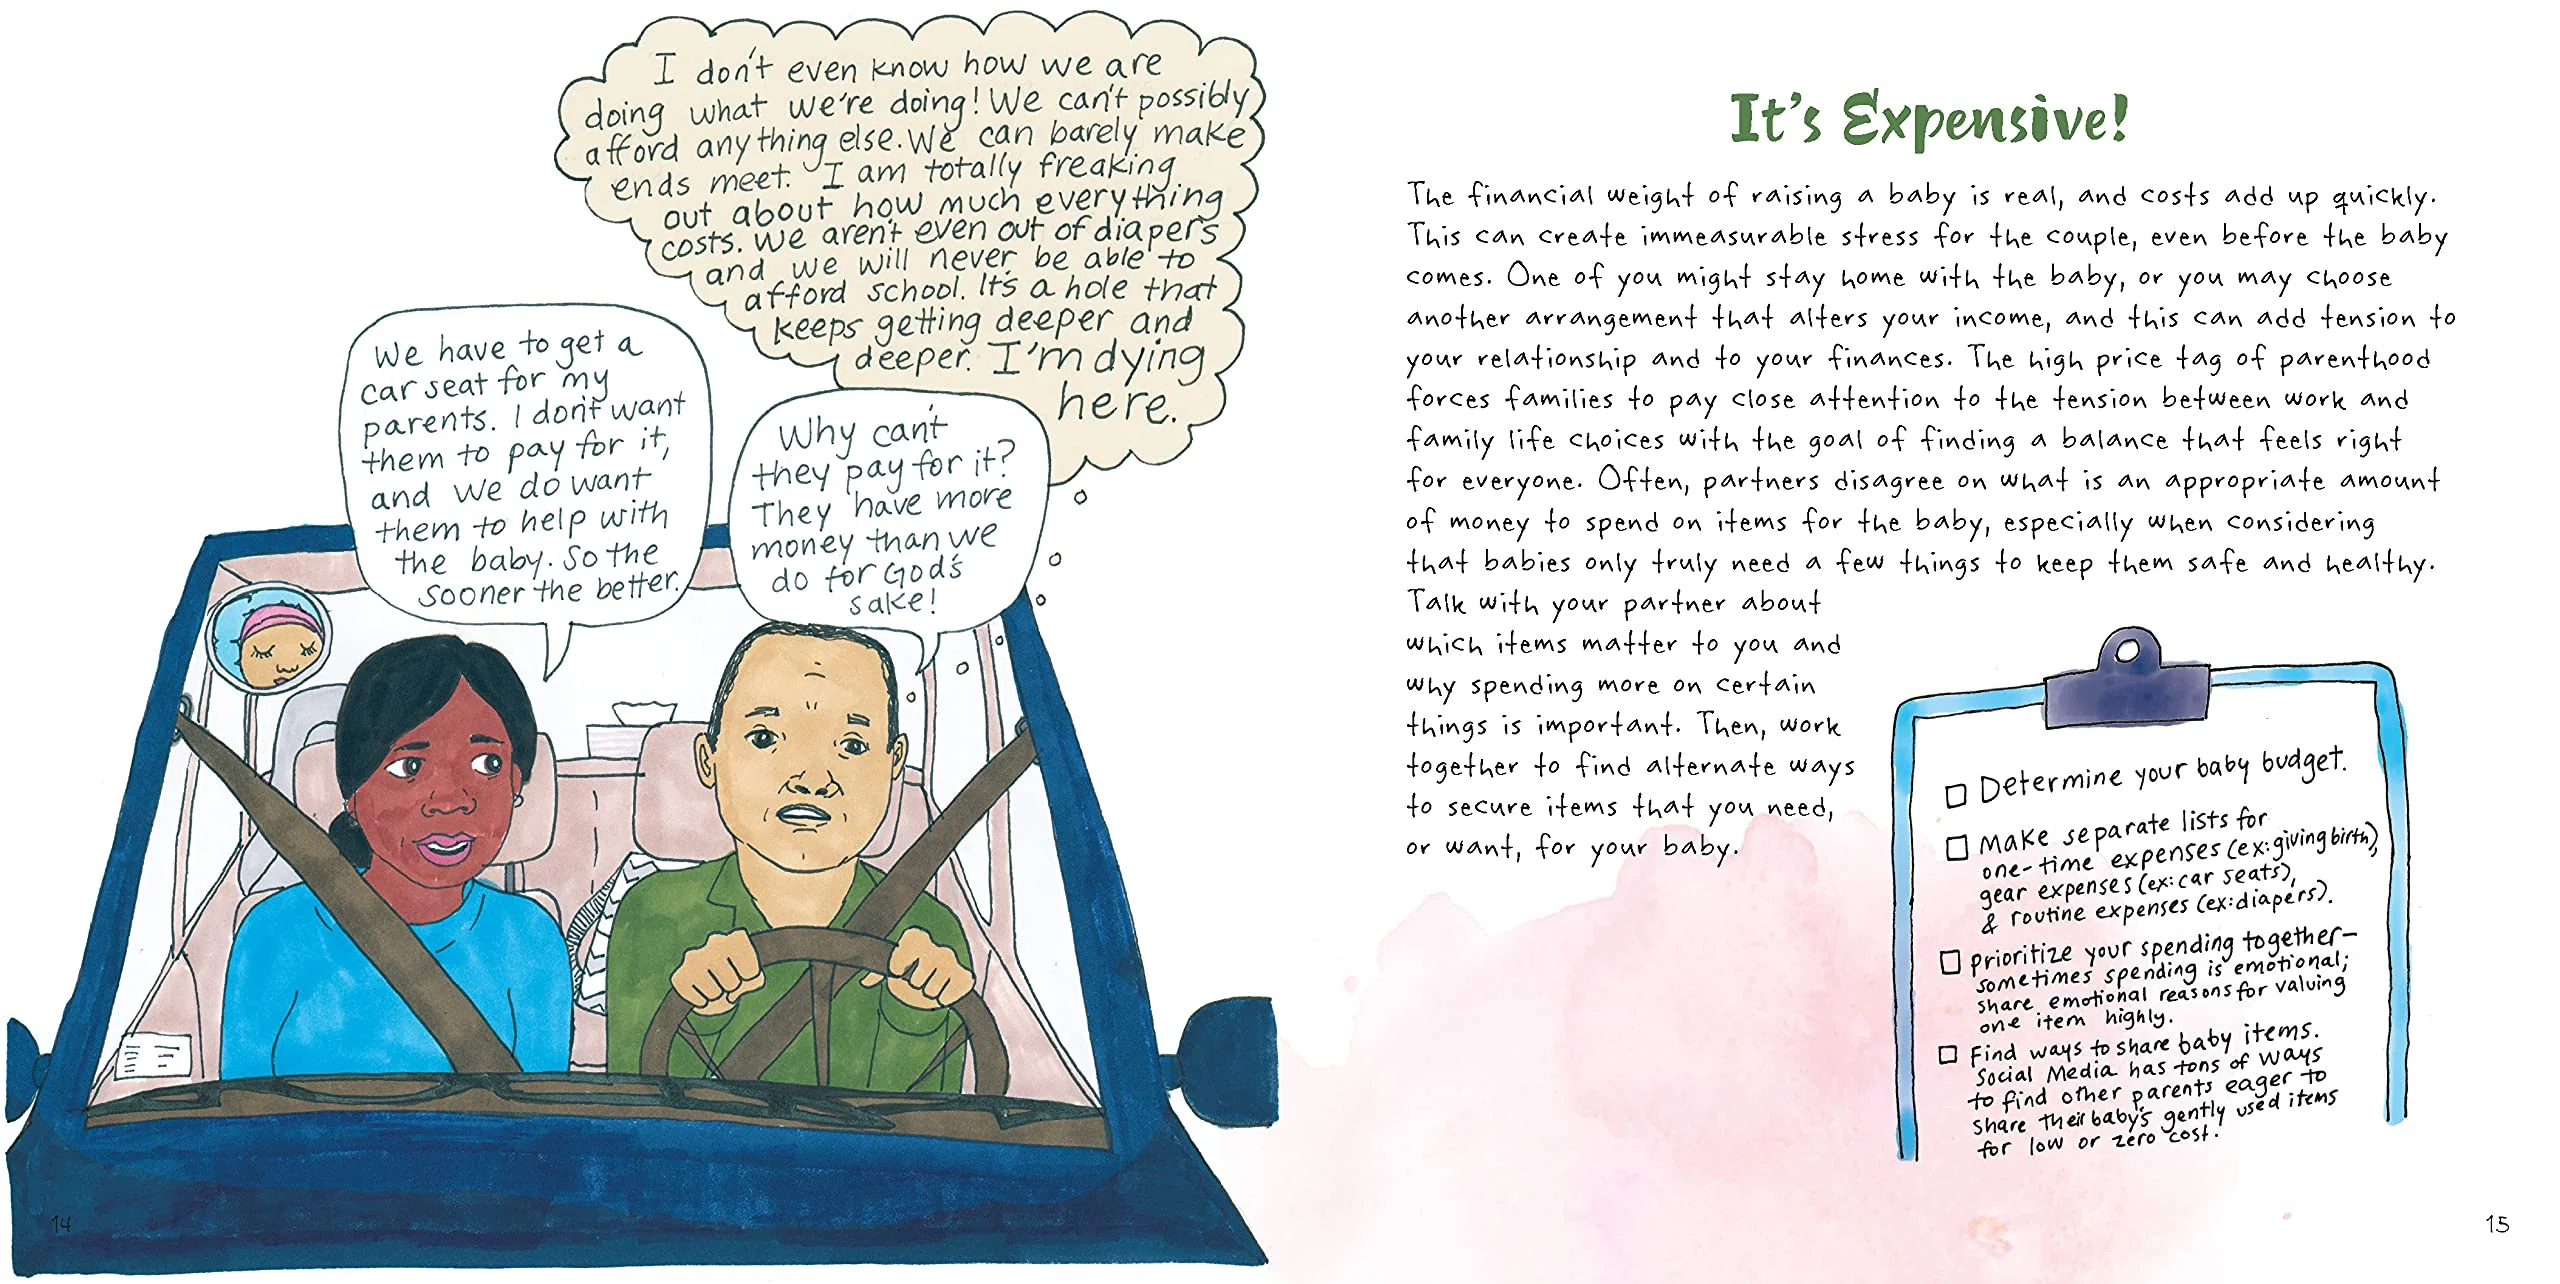 We have to get a
car seat for my
parents. I don't want
them to pay for it,
and we do want
them to help with
the baby. So the
sooner the better.
Why can't
they pay for it?
They have more
money than we
do for God's
sake!
I don't even know how we are
doing what we're doing! We can't possibly
afford anything else. We can barely make
ends meet. I am totally freaking
out about how much everything
costs. We aren't even out of diapers
and we will never be able to
afford school. It's a hole that
keeps getting deeper and
deeper. I'm dying
here.
14
It's Expensive!
The financial weight of raising a baby is real, and costs add up quickly.
This can create immeasurable stress for the couple, even before the baby
comes. One of you might stay home with the baby, or you may choose
another arrangement that alters your income, and this can add tension to
your relationship and to your finances. The high price tag of parenthood
forces families to pay close attention to the tension between work and
family life choices with the goal of finding a balance that feels right
for everyone. Often, partners disagree on what is an appropriate amount
of money to spend on items for the baby, especially when considering
that babies only truly need a few things to keep them safe and healthy.
Talk with your partner about
which items matter to you and
why spending more on certain
things is important. Then, work
together to find alternate ways
to secure items that you need,
or want, for your baby.
Determine your baby budget.
Make separate lists for
one-time expenses (ex: giving birth),
gear expenses (ex: car seats),
& routine expenses (ex: diapers).
prioritize your spending together—
sometimes spending is emotional;
share emotional reasons for valuing
one item highly.
Find ways to share baby items.
Social Media has tons of ways
to find other parents eager to
share their baby's gently used items
for low or zero cost.
15